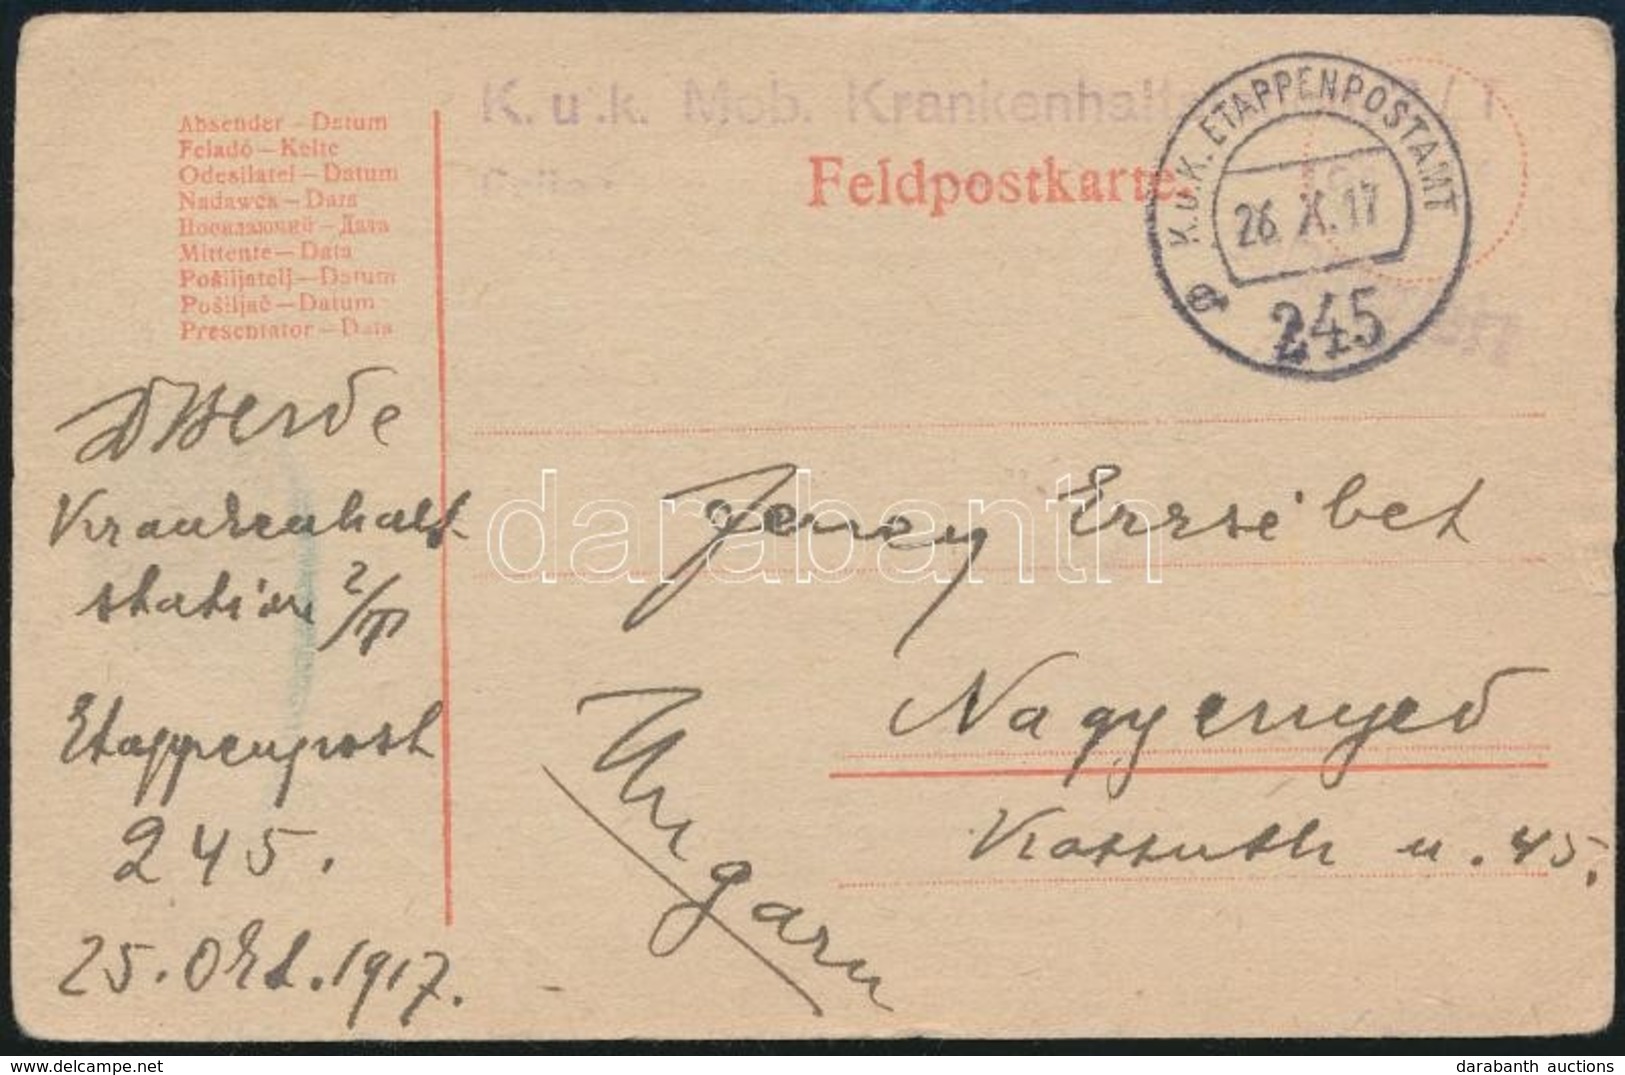 K. u. k. Mob. Krankenhalt
Feldpostkarte.
K.u.K. ETAPPENPOSTAMT
26. X. 17
245
Absender – Datum
Feladó – Kelte
Odesilatel – Datum
Nadawca – Data
Посилаючий – Дата
Mittente – Data
Pošiljatelj – Datum
Pošiljač – Datum
Presentator – Data
Krankenhalt
station 2/T
Etappenpost
245.
25. Okt. 1917.
Jeney Erzsébet
Nagyenyed
Kossuth u. 45.
Ungarn
darabanth
darabanth auctions